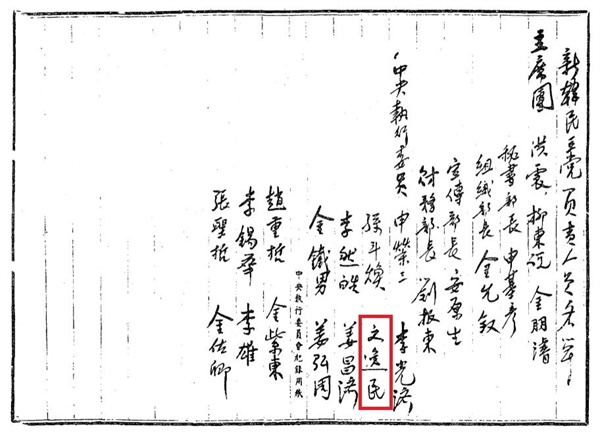 新韓民主党負責人員名單
主席團 洪震、柳東說 金朋濬
秘書部長 申基彥
組織部長 金允敘
宣傳部長 安原生
財務部長 劉振東
中央執行委員 申榮三 李光濟
孫斗煥 文逸民
李然皓 姜昌濟
金鐵男 姜弘周
中央執行委員會紀錄用紙
趙重哲 金紫東
李錫華 李雄
張聖哲 金佐卿